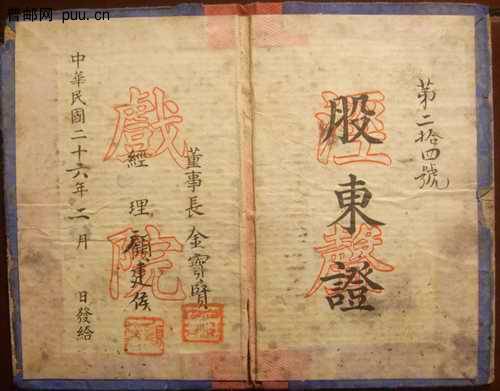 普邮网 puu.cn
第二拾四號
股東證
涇聲
戲院
董事長 金寶賢
經理 顧建侯
中華民國二十六年二月 日發給